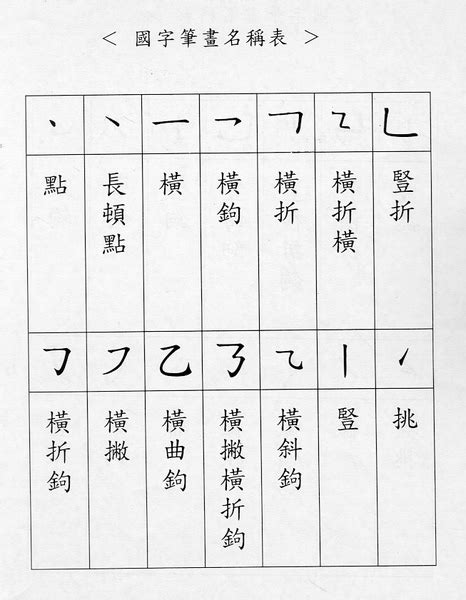 < 國字筆畫名稱表 >
丶 ㇔ 一 乛 ㇕ ㇍ ㇗
點
長頓點
橫
橫鉤
橫折
橫折橫
豎折
㇆ ㇇ 乙 ㇡ ⺄ 丨 ㇀
橫折鉤
橫撇
橫曲鉤
橫撇橫折鉤
橫斜鉤
豎
挑